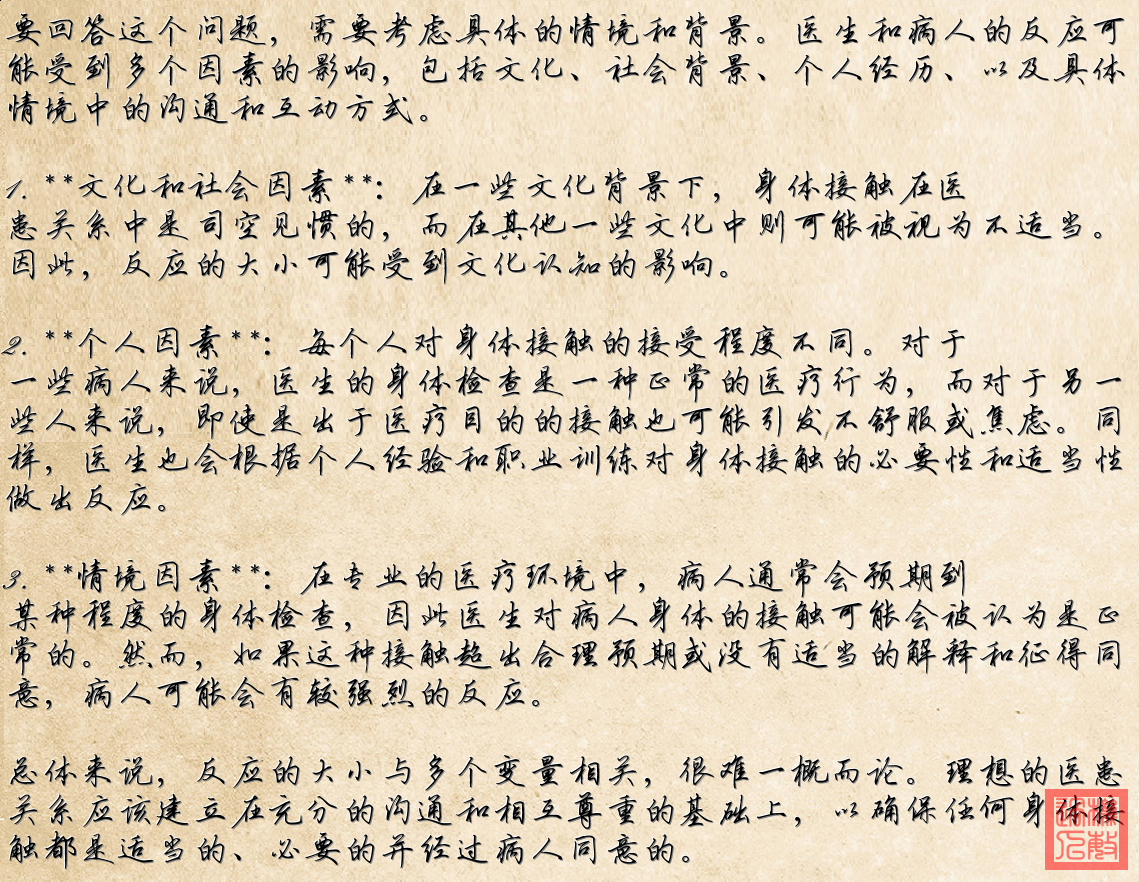 要回答这个问题，需要考虑具体的情境和背景。医生和病人的反应可
能受到多个因素的影响，包括文化、社会背景、个人经历、以及具体
情境中的沟通和互动方式。
1. **文化和社会因素**：在一些文化背景下，身体接触在医
患关系中是司空见惯的，而在其他一些文化中则可能被视为不适当。
因此，反应的大小可能受到文化认知的影响。
2. **个人因素**：每个人对身体接触的接受程度不同。对于
一些病人来说，医生的身体检查是一种正常的医疗行为，而对于另一
些人来说，即使是出于医疗目的的接触也可能引发不舒服或焦虑。同
样，医生也会根据个人经验和职业训练对身体接触的必要性和适当性
做出反应。
3. **情境因素**：在专业的医疗环境中，病人通常会预期到
某种程度的身体检查，因此医生对病人身体的接触可能会被认为是正
常的。然而，如果这种接触超出合理预期或没有适当的解释和征得同
意，病人可能会有较强烈的反应。
总体来说，反应的大小与多个变量相关，很难一概而论。理想的医患
关系应该建立在充分的沟通和相互尊重的基础上，以确保任何身体接
触都是适当的、必要的并经过病人同意的。